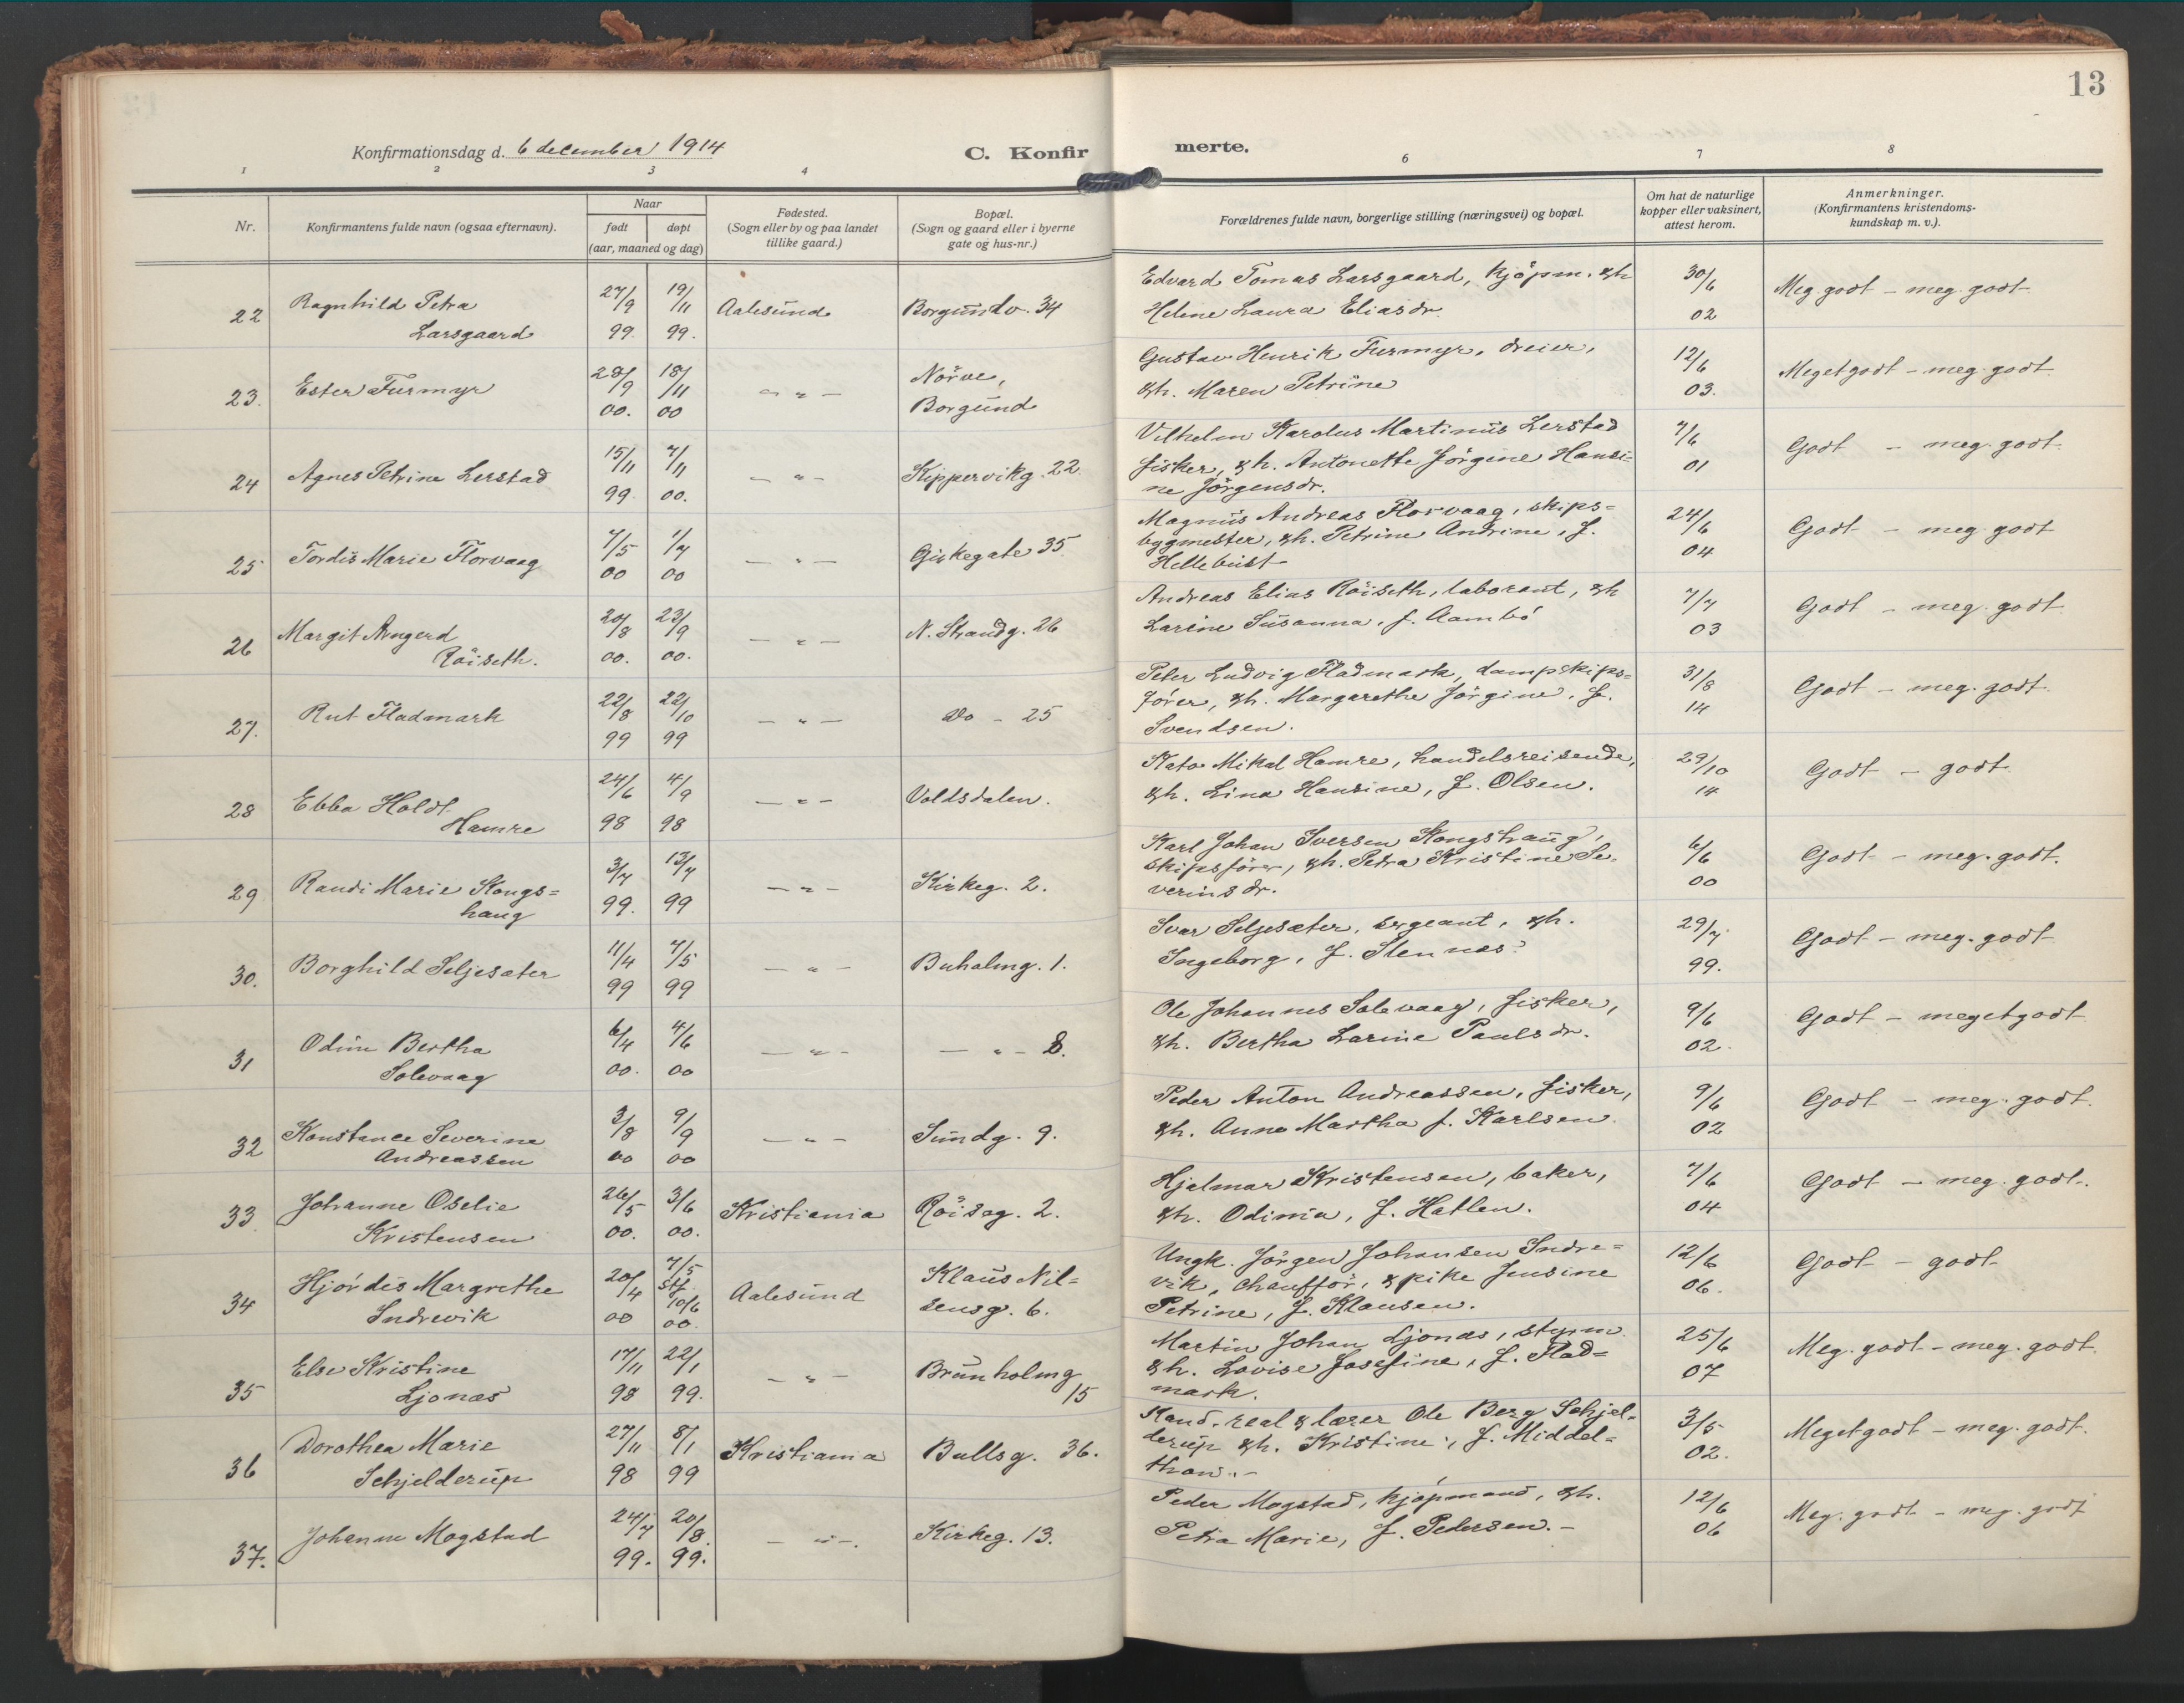 13
Konfirmationsdag d. 6 december 1914
C. Konfir
merte.
1 2 3 4 6 7 8
Nr.
Konfirmantens fulde navn (ogsaa efternavn).
Naar
født døpt
(aar, maaned og dag)
Fødested.
(Sogn eller by og paa landet
tillike gaard.)
Bopæl.
(Sogn og gaard eller i byerne
gate og hus-nr.)
Forældrenes fulde navn, borgerlige stilling (næringsvei) og bopæl.
Om hat de naturlige
kopper eller vaksinert,
attest herom.
Anmerkninger.
(Konfirmantens kristendoms-
kundskap m. v.).
22 Ragnhild Petra
Larsgaard
27/9 99. 19/11 99. Aalesund Borgundv. 34
Edvard Tomas Larsgaard, kjöpm. & h
Helene Laura Eliasdr.
30/6 02 Meg godt - meg. godt
23. Ester Furmyr
28/9 00. 18/11 00 - " - Nörve,
Borgund
Gustav Henrik Furmyr, dreier,
& h. Maren Petrine
12/6 03. Megetgodt - meg. godt.
24 Agnes Petrine Lerstad
15/11 99. 7/11 00. - " - Kippervikg. 22.
Vilhelm Karolus Martinus Lerstad
fisker, & h. Antonette Jörgine Hansi=
ne Jörgensdr.
7/6 01 Godt - meg. godt
25 Tordis Marie Florvaag
7/5 00 1/7 00 - " - Giskegate 35.
Magnus Andreas Florvaag, skips=
bygmester, & h. Petrine Andrine, f.
Hellebust
24/6 04 Godt - meg godt
26 Margit Arngerd
Röiseth.
20/8 00. 23/9 00. - " - N. Strandg. 26
Andreas Elias Röiseth, laborant, & h
Larine Susanna, f. Aambö
7/7 03 Godt - meg. godt
27. Rut Fladmark
22/8 99 22/10 99 - " - do - 25
Peter Ludvig Fladmark, dampskips=
förer, & h. Margarethe Jörgine, f.
Svendsen.
31/8 14 Godt - meg. godt.
28 Ebba Holdt
Hamre
24/6 98 4/9 98 - " - Voldsdalen.
Kato Mikal Hamre, handelsreisende,
& h. Lina Hansine, f. Olsen.
29/10 14 Godt - godt.
29 Randi Marie Kongs=
haug
3/7 99. 13/7 99 - " - Kirkeg. 2.
Karl Johan Iversen Kongshaug,
skipsförer, & h. Petra Kristine Se=
verinsdr.
6/6 00 Godt - meg. godt.
30. Borghild Seljesæter
11/4 99 7/5 99 - " - Buholmg. 1.
Ivar Seljesæter, sergeant, & h.
Ingeborg, f. Stennes
29/7 99. Godt - meg. godt
31 Odine Bertha
Solevaag
6/4 00. 4/6 00 - " - - " - 8.
Ole Johannes Solevaag, fisker,
& h. Bertha Larine Paulsdr.
9/6 02. Godt - megetgodt
32 Konstance Severine
Andreassen
3/8 00 9/9 00 - " - Sundg. 9.
Peder Anton Andreassen, fisker,
& h. Anne Martha f. Karlsen.
9/6 02 Godt - meg. godt.
33. Johanne Oselie
Kristensen
26/5 00. 3/6 00. Kristiania Röisag. 2.
Hjelmar Kristensen, baker,
& h. Odinia, f. Hatlen.
7/6 04 Godt - meg. godt.
34 Hjördis Margrethe
Indrevik
20/4 00 7/5 stf. 10/6 00. Aalesund Klaus Nil=
sensg. 6.
Ungk. Jörgen Johansen Indre=
vik, chaufför, & pike Jensine
Petrine, f. Klausen.
12/6 06. Godt - godt.
35 Else Kristine
Ljonæs
17/11 98 22/1 99. - " - Brunholmg
15
Martin Johan Ljonæs, styrm.
& h. Lovise Josefine, f. Flad=
mark.
25/6 07 Meg. godt - meg. godt.
36 Dorothea Marie
Schjelderup
27/11 98 8/1 99 Kristiania Bullsg. 36.
Kand. real & lærer Ole Berg Schjel=
derup & h. Kristine, f. Middel=
thon. -
3/5 02. Megetgodt - meg. godt.
37. Johanne Mogstad
24/7 99. 20/8. 99. - " -. Kirkeg. 13.
Peder Mogstad, kjöpmand, & h.
Petra Marie, f. Pedersen. -
12/6 06 Meg. godt - meg. godt